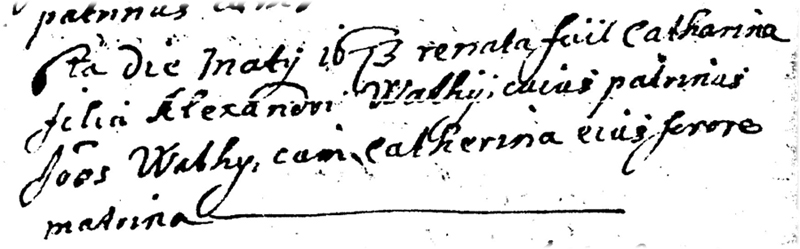 patrinus cum
6ta die maty 1673 renata fuit Catharina
filia Alexandri Wathy, cuius patrinus
Jões Wathy, cum Catherina eius sorore
matrina